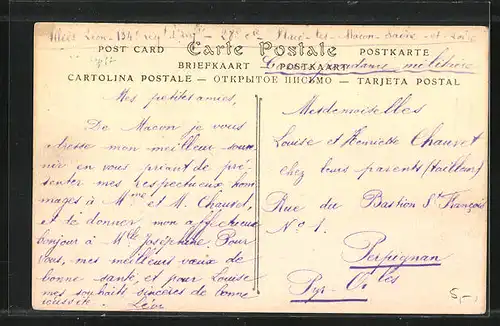 Allés Léon - 134e regt d'Infie - 27e Cie Placé-les-Macon-Saône-et-Loire
POST CARD Carte Postale POSTKARTE
BRIEFKAART POSTKAART
Correspondance militaire
CARTOLINA POSTALE — ОТКРЫТОЕ ПИСЬМО — TARJETA POSTAL
Mes petites amies,
De Macon je vous
adresse mon meilleur souve-
nir en vous priant de pré-
senter mes respectueux hom-
mages à Mme et M. Chauvet,
et de donner mon affectueux
bonjour à Mlle Joséphine. Pour
vous, mes meilleurs vœux de
bonne santé, et pour Louise
mes souhaits sincères de bonne
réussite. Léon
Mesdemoiselles
Louise et Henriette Chauvet
chez leurs parents (tailleur)
Rue du Bastion St François
No 1.
Perpignan
Pyr-Oles
5,-